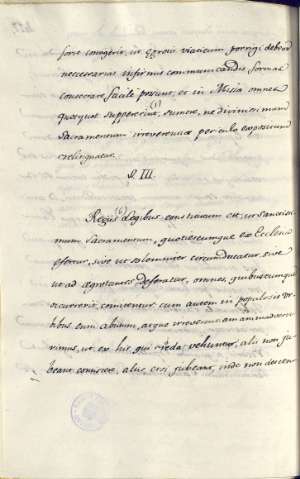 forte contigerit, ut Egrotis viaticum porrigi debeat
necessarias infirmis communicandis formas
consecrare facilè possunt, et in Missa omnes
quotquot supererunt, (a) sumere, ne divinissimum
Sacramentum irreverentiæ periculo expositum
relinquatur.
§. III.
Regiis (b) Legibus constitutum est, ut Sanctissi
mum Sacramentum, quotiescumque ex Ecclesia
effertur, sive ut solemniter circumducatur, sive
ut ad aegrotantes deferatur, omnes, quibuscumque
occurrerit, comitentur cum autem in populosis Ur
bibus eum abusum, atque irreverentiam animadverte
rimus, ut ex his, qui rheda vehuntur, alii non ju
beant consistere, alii, etsi jubeant, inde non descen